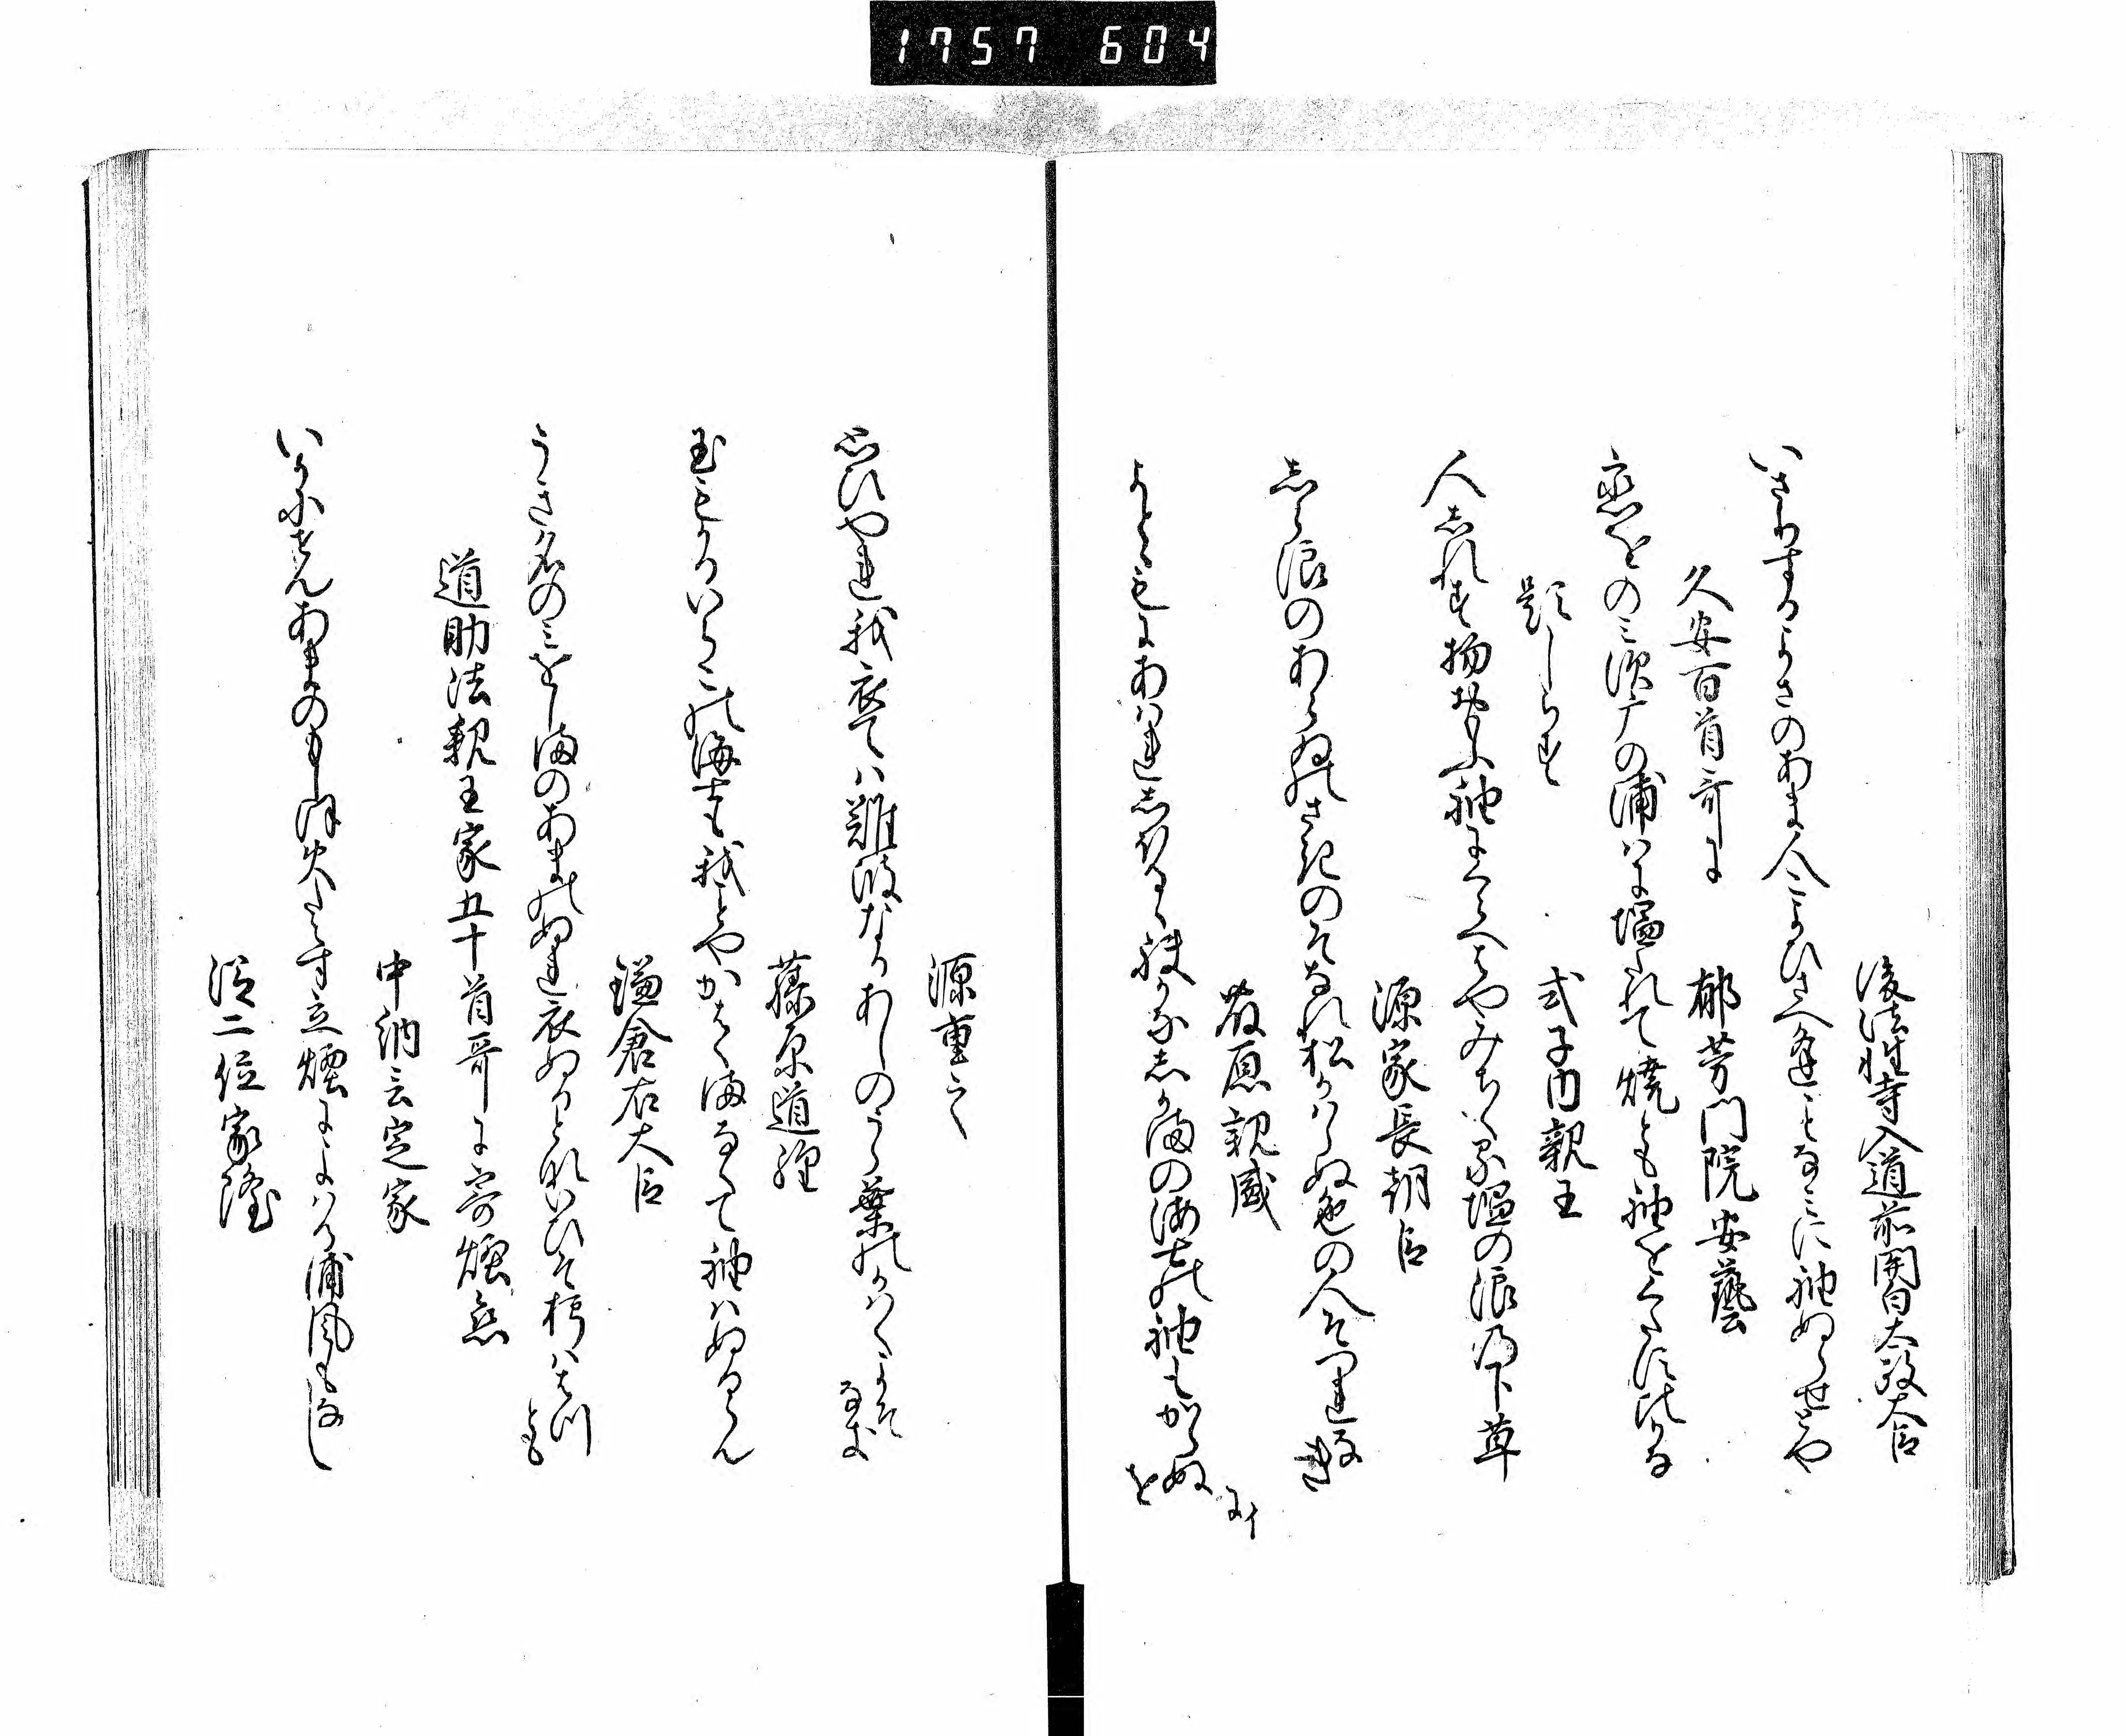 1757 604
後法性寺入道前関白太政大臣
いさりするよさのあま人こよひさへ逢ことなみに袖ぬらせとや
久安百首哥に
郁芳門院安藝
恋をのみ須广の浦人に塩たれて焼とも袖をくたす比かな
題しらす
式子内親王
人しれす物おもふ袖にくらへはやみちくる塩の浪の下草
源家長朝臣
しら浪のあらゐそさきのそなれ松かはらぬ色の人そつれなき
藤原親盛
よとゝもにあはれしほるゝ袂かなしかまの海士の袖もかゝらぬを
にイ
源重之
思ひやれ我衣ては難波なるあしのうら葉のかはくよそなき
藤原道経
玉もかるいらこの海士も我ことやかはくまなくて袖はぬるらん
鎌倉右大臣
うき名のみをしまのあまのぬれ衣ぬるとないひそ朽ははつとも
道助法親王家五十首哥に寄煙恋
中納言定家
いかにせんあまのもしほ火たえす立煙によはる浦風もなし
従二位家隆